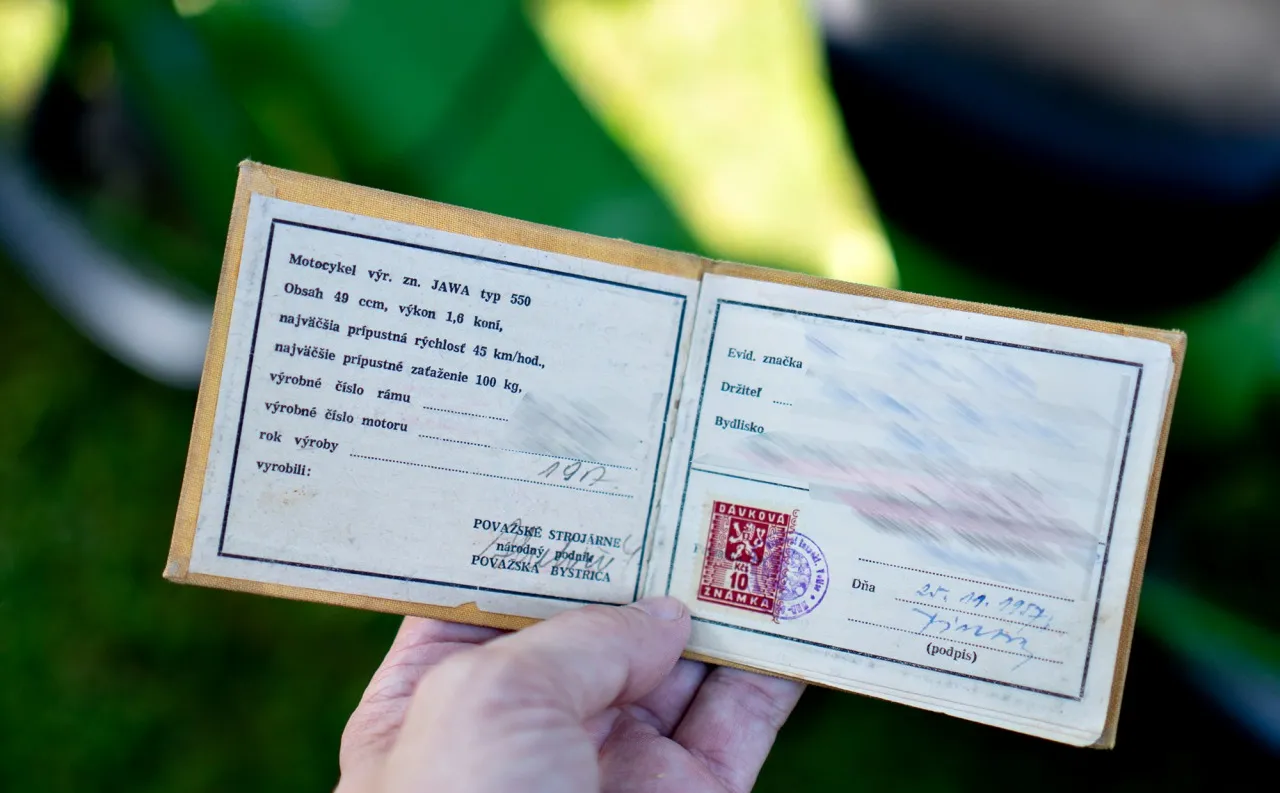 Motocykel výr. zn. JAWA typ 550
Obsah 49 ccm, výkon 1,6 koní,
najväčšia prípustná rýchlosť 45 km/hod.,
najväčšie prípustné zaťaženie 100 kg,
výrobné číslo rámu
výrobné číslo motoru
rok výroby
vyrobili:
POVAŽSKÉ STROJÁRNE
národný podnik
POVAŽSKÁ BYSTRICA
Evid. značka
Držiteľ
Bydlisko
DÁVKOVÁ
Kčs
10
ZNÁMKA
Dňa
(podpis)